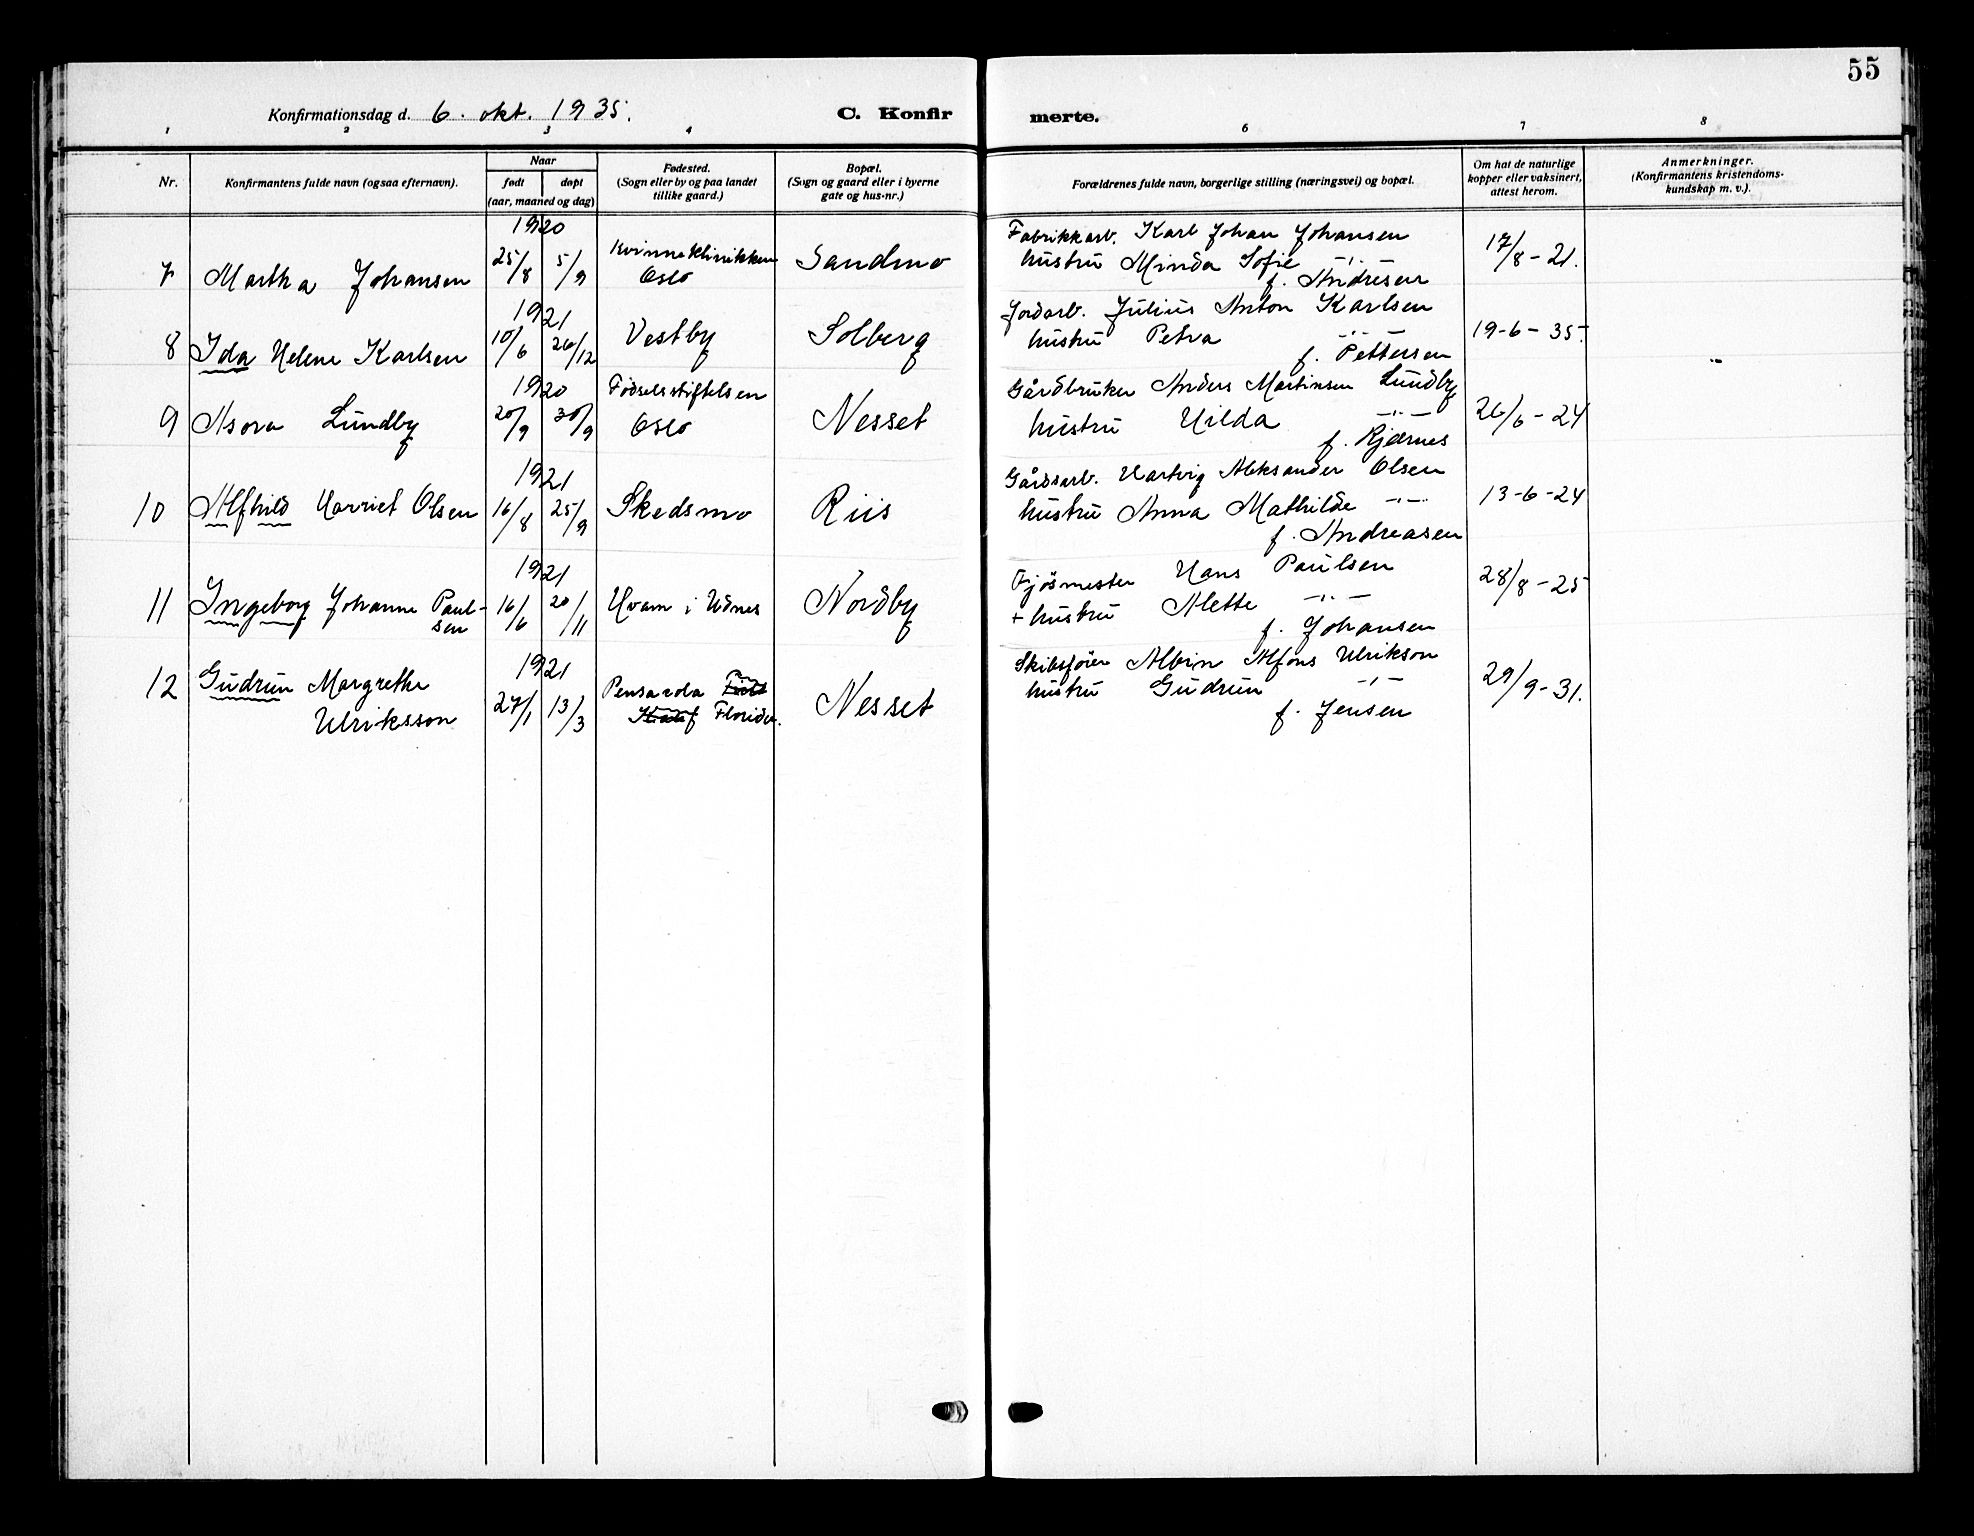 55
Konfirmationsdag d. 6. okt. 1935.
C. Konfir merte.
1 2 3 4 6 7 8
Nr.
Konfirmantens fulde navn (ogsaa efternavn).
Naar
født døpt
(aar, maaned og dag)
Fødested.
(Sogn eller by og paa landet
tillike gaard.)
Bopæl.
(Sogn og gaard eller i byerne
gate og hus-nr.)
Forældrenes fulde navn, borgerlige stilling (næringsvei) og bopæl.
Om hat de naturlige
kopper eller vaksinert,
attest herom.
Anmerkninger.
(Konfirmantens kristendoms-
kundskap m. v.).
1920
7 Martha Johansen 25/8 5/9 Kvinneklinikken
Oslo
Sandmo
Fabrikkarb. Karl Johan Johansen
hustru Minda Sofie -"-
f. Andresen
17/8-21.
1921
8 Ida Helene Karlsen 10/6 26/12 Vestby Solberg
Jordarb. Julius Anton Karlsen
hustru Petra -"-
f. Pettersen
19-6-35.
1920
9 Asora Lundby 20/9 30/9 Fødselsstiftelsen
Oslo
Nesset
Gårdbruker Anders Martinsen Lundby
hustru Hilda -"-
f. Kjærnes
26/6-24
1921
10 Alfhild Harriet Olsen 16/8 25/9 Skedsmo Riis
Gårdsarb. Hartvig Aleksander Olsen
hustru Anna Mathilde -"-
f. Andreasen
13-6-24
1921
11 Ingeborg Johanne Paul-
sen
16/6 20/11 Hvam i Udnes Nordby
Fjøsmester Hans Paulsen
+ hustru Alette -"-
f. Johansen
28/8-25
1921
12 Gudrun Margrethe
Ulriksson
27/1 13/3 Pensacola
Florida.
Nesset
Skibsfører Albin Alfons Ulrikson
hustru Gudrun -"-
f. Jensen
29/9-31.